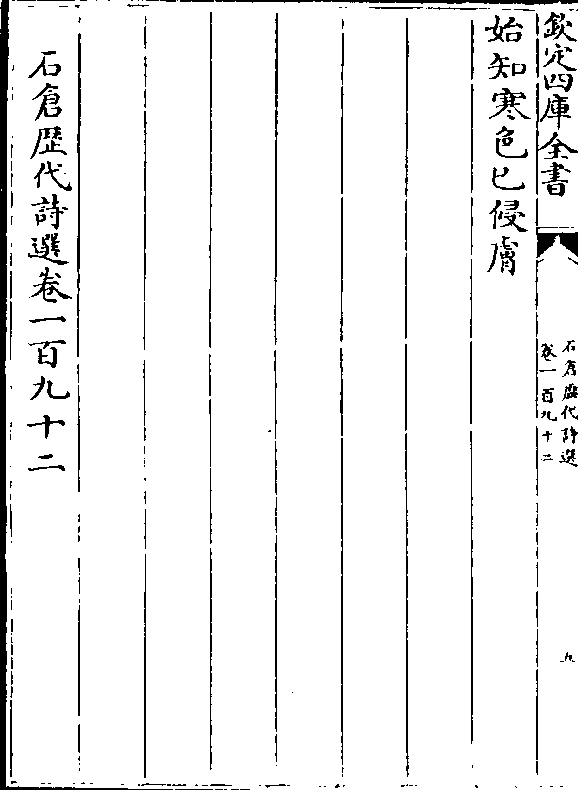 欽定四庫全書
石倉歷代詩選
卷一百九十二
九
始知寒色已侵膚
石倉歷代詩選卷一百九十二